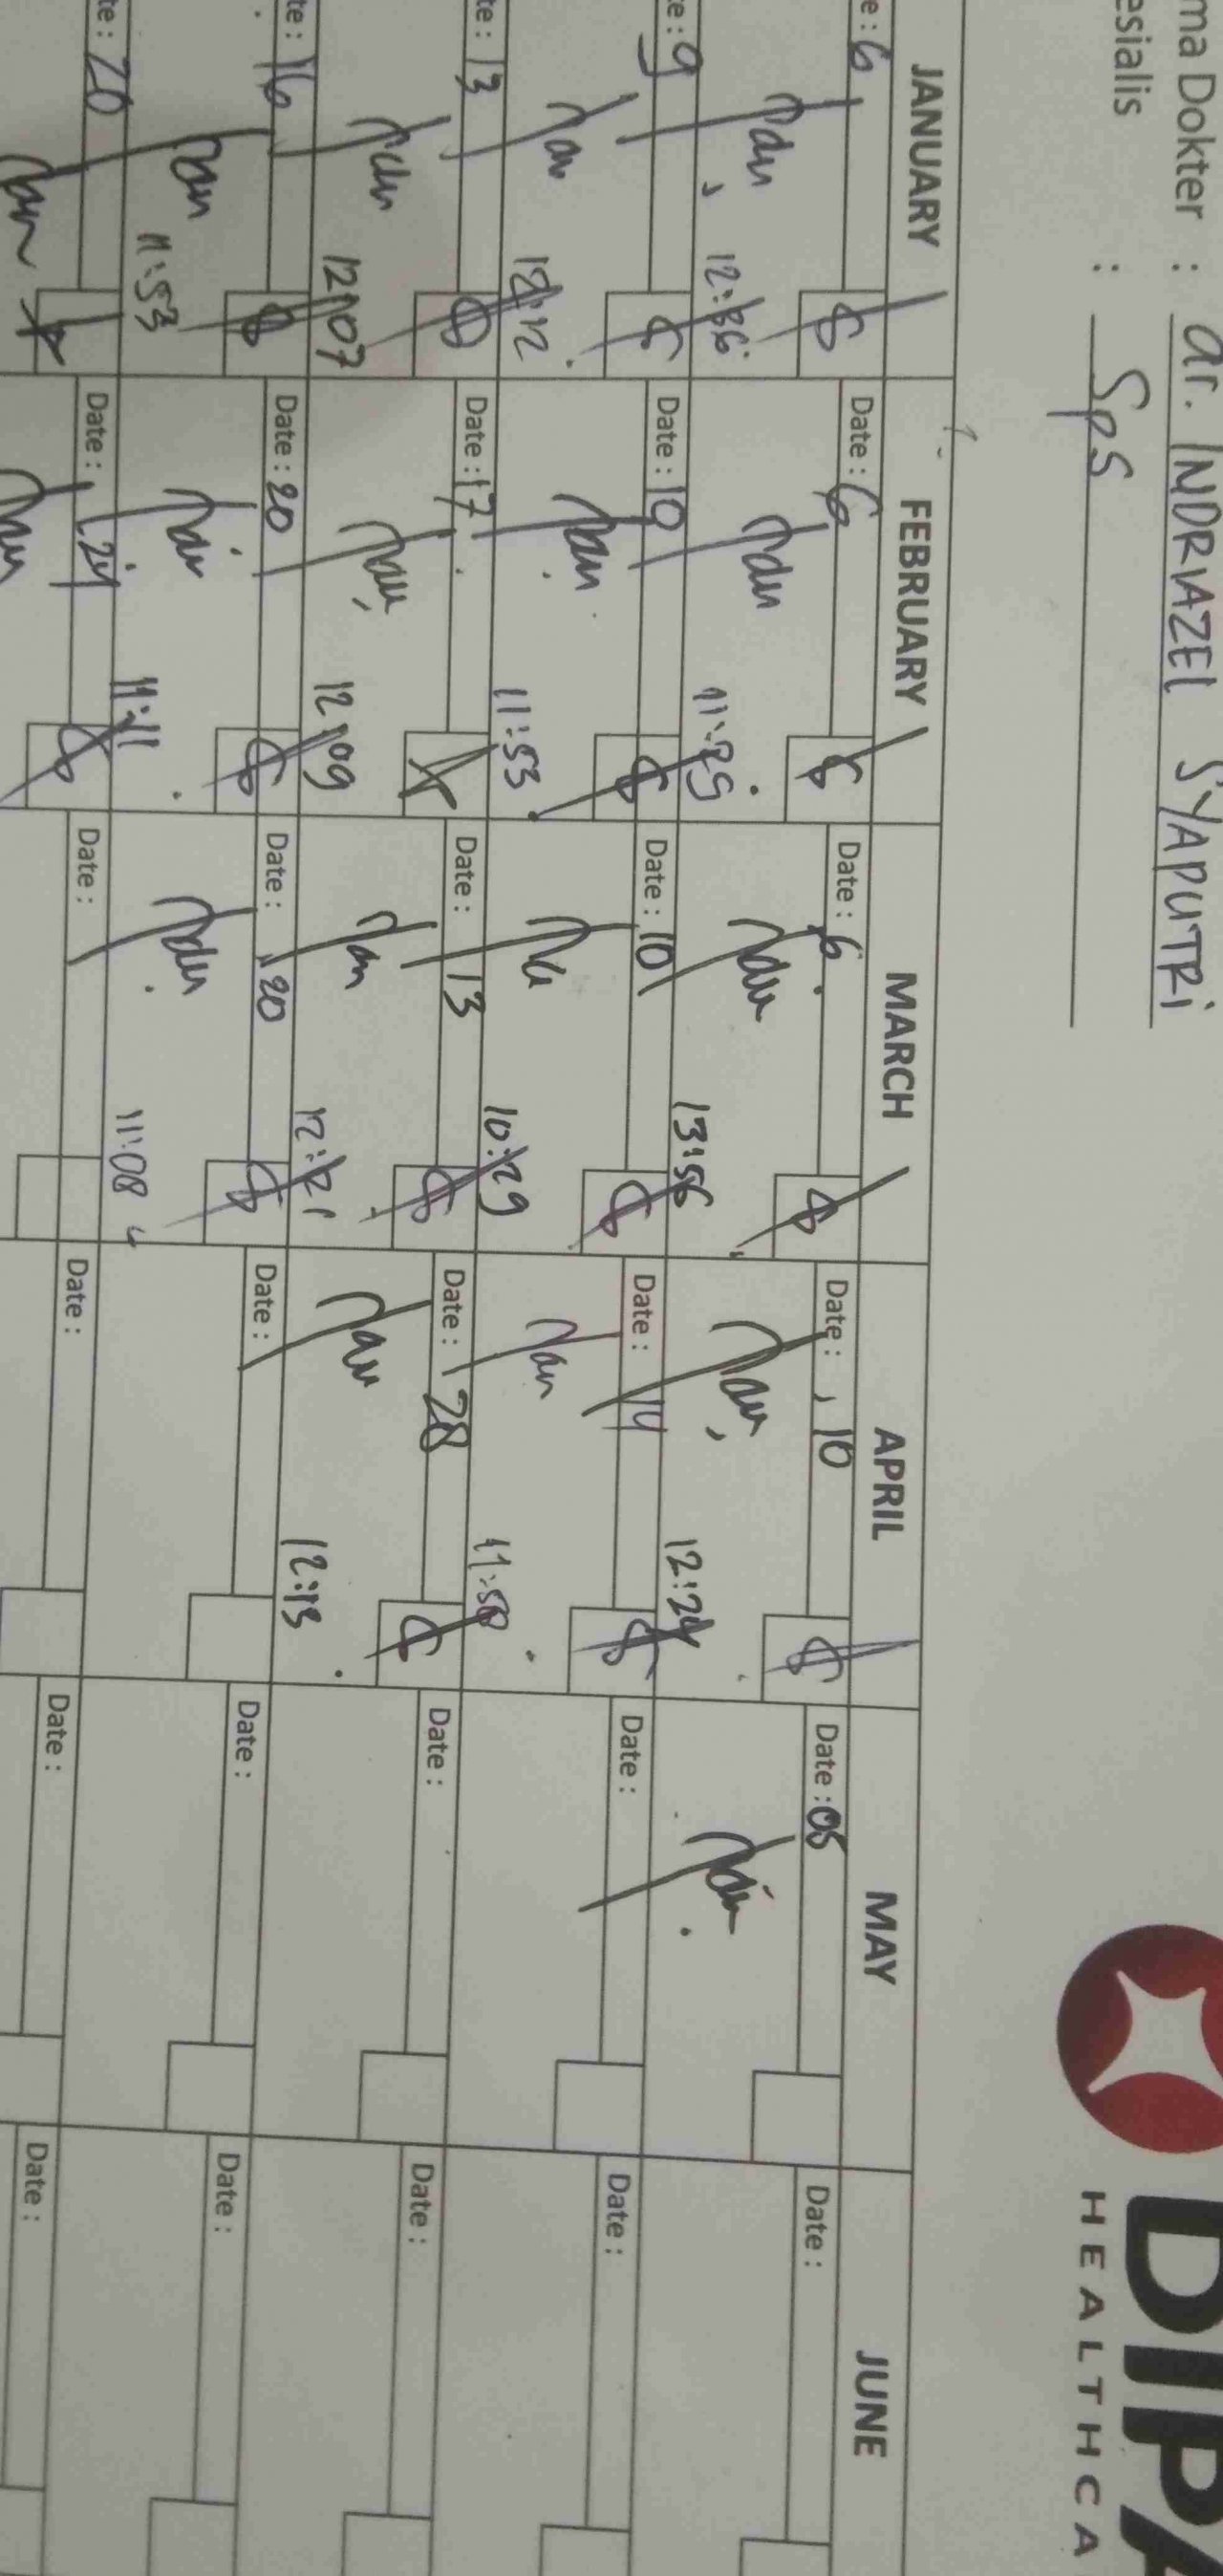 ma Dokter : dr. INDRIAZEL SYAPUTRi
esialis : SpS
DIPA
HEALTHCA
JANUARY FEBRUARY MARCH APRIL MAY JUNE
e : 6 Date : 6 Date : 6 Date : 10 Date : 05 Date :
12:36 11:25 13:56 12:24
e : 9 Date : 10 Date : 10 Date : 14 Date : Date :
12:12 11:53 10:29 11:50
te : 13 Date : 17 Date : 13 Date : 28 Date : Date :
12:07 12:09 12:21 12:13
te : 16 Date : 20 Date : 20 Date : Date : Date :
11:53 11:11 11:08
te : 20 Date : 24 Date : Date : Date : Date :